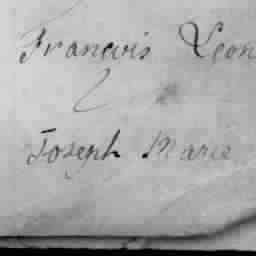 Francois Leon
2
Joseph Marie